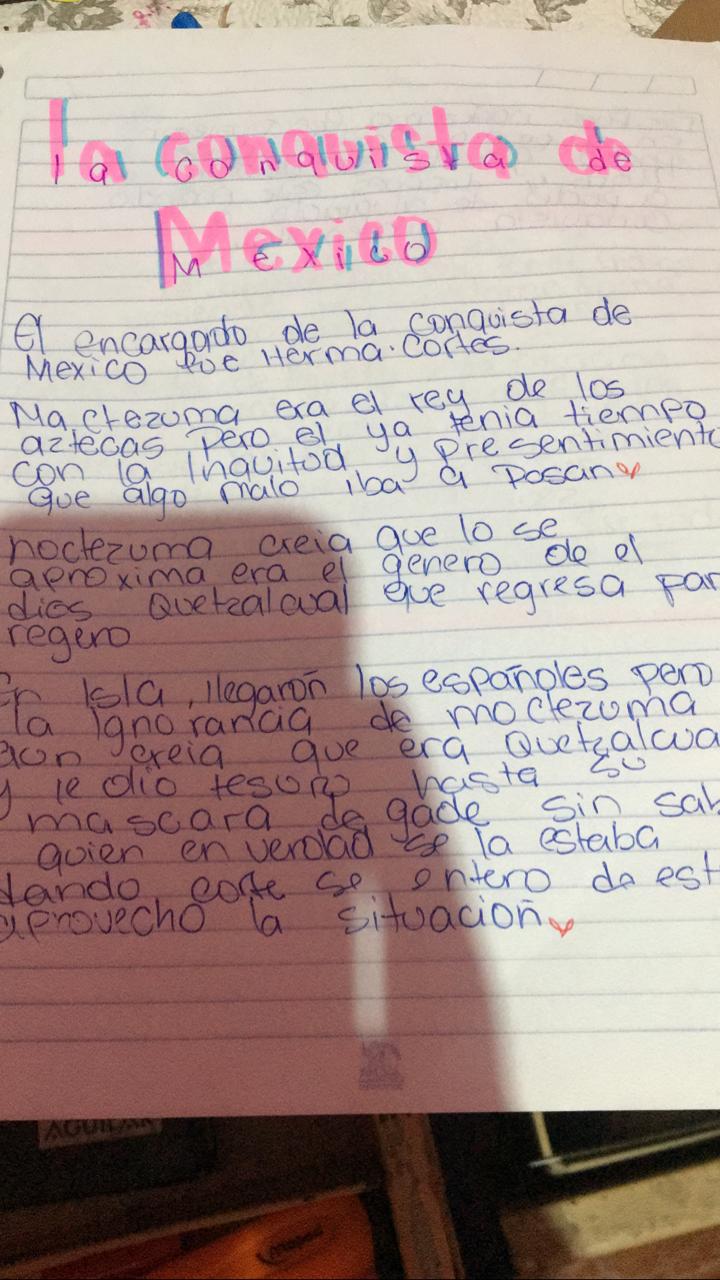 la conquista de
Mexico
El encargado de la conquista de
Mexico fue Herma. Cortes.
Moctezuma era el rey de los
aztecas Pero el ya tenia tiempo
con la Inquitod y presentimiento
que algo malo iba a Pasan
noctezuma creia que lo se
aproxima era el genero de el
dios Quetzalcual que regresa par
regero
En Isla, llegaron los españoles pero
la ignorancia de moctezuma
aun creia que era Quetzalcua
y le dio tesoro hasta su
mascara de gade sin sab
quien en verdad se la estaba
dando corte se entero de est
aprovecho la situacion
AGUILAR